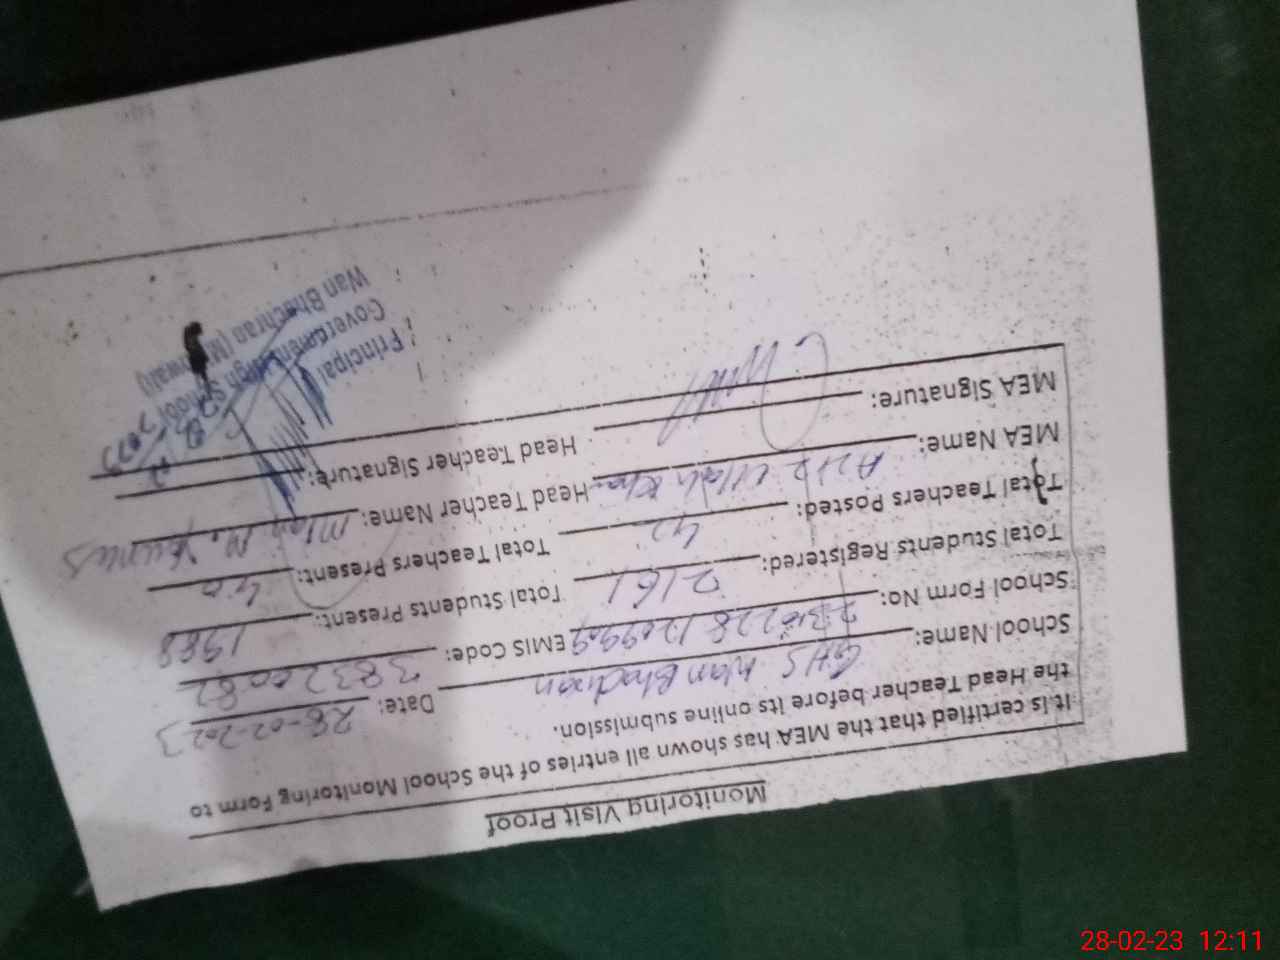 Monitoring Visit Proof
It is certified that the MEA has shown all entries of the School Monitoring Form to
the Head Teacher before its online submission.
School Name: GHS Wan Bhachran Date: 28-02-2023
School Form No: EMIS Code: 38320082
Total Students Registered: 2161 Total Students Present: 1988
Total Teachers Posted: 42 Total Teachers Present: 40
MEA Name: Head Teacher Name: M. Younus
MEA Signature: Head Teacher Signature:
Principal
Government High School
Wan Bhachran (Mianwali)
28-02-23 12:11